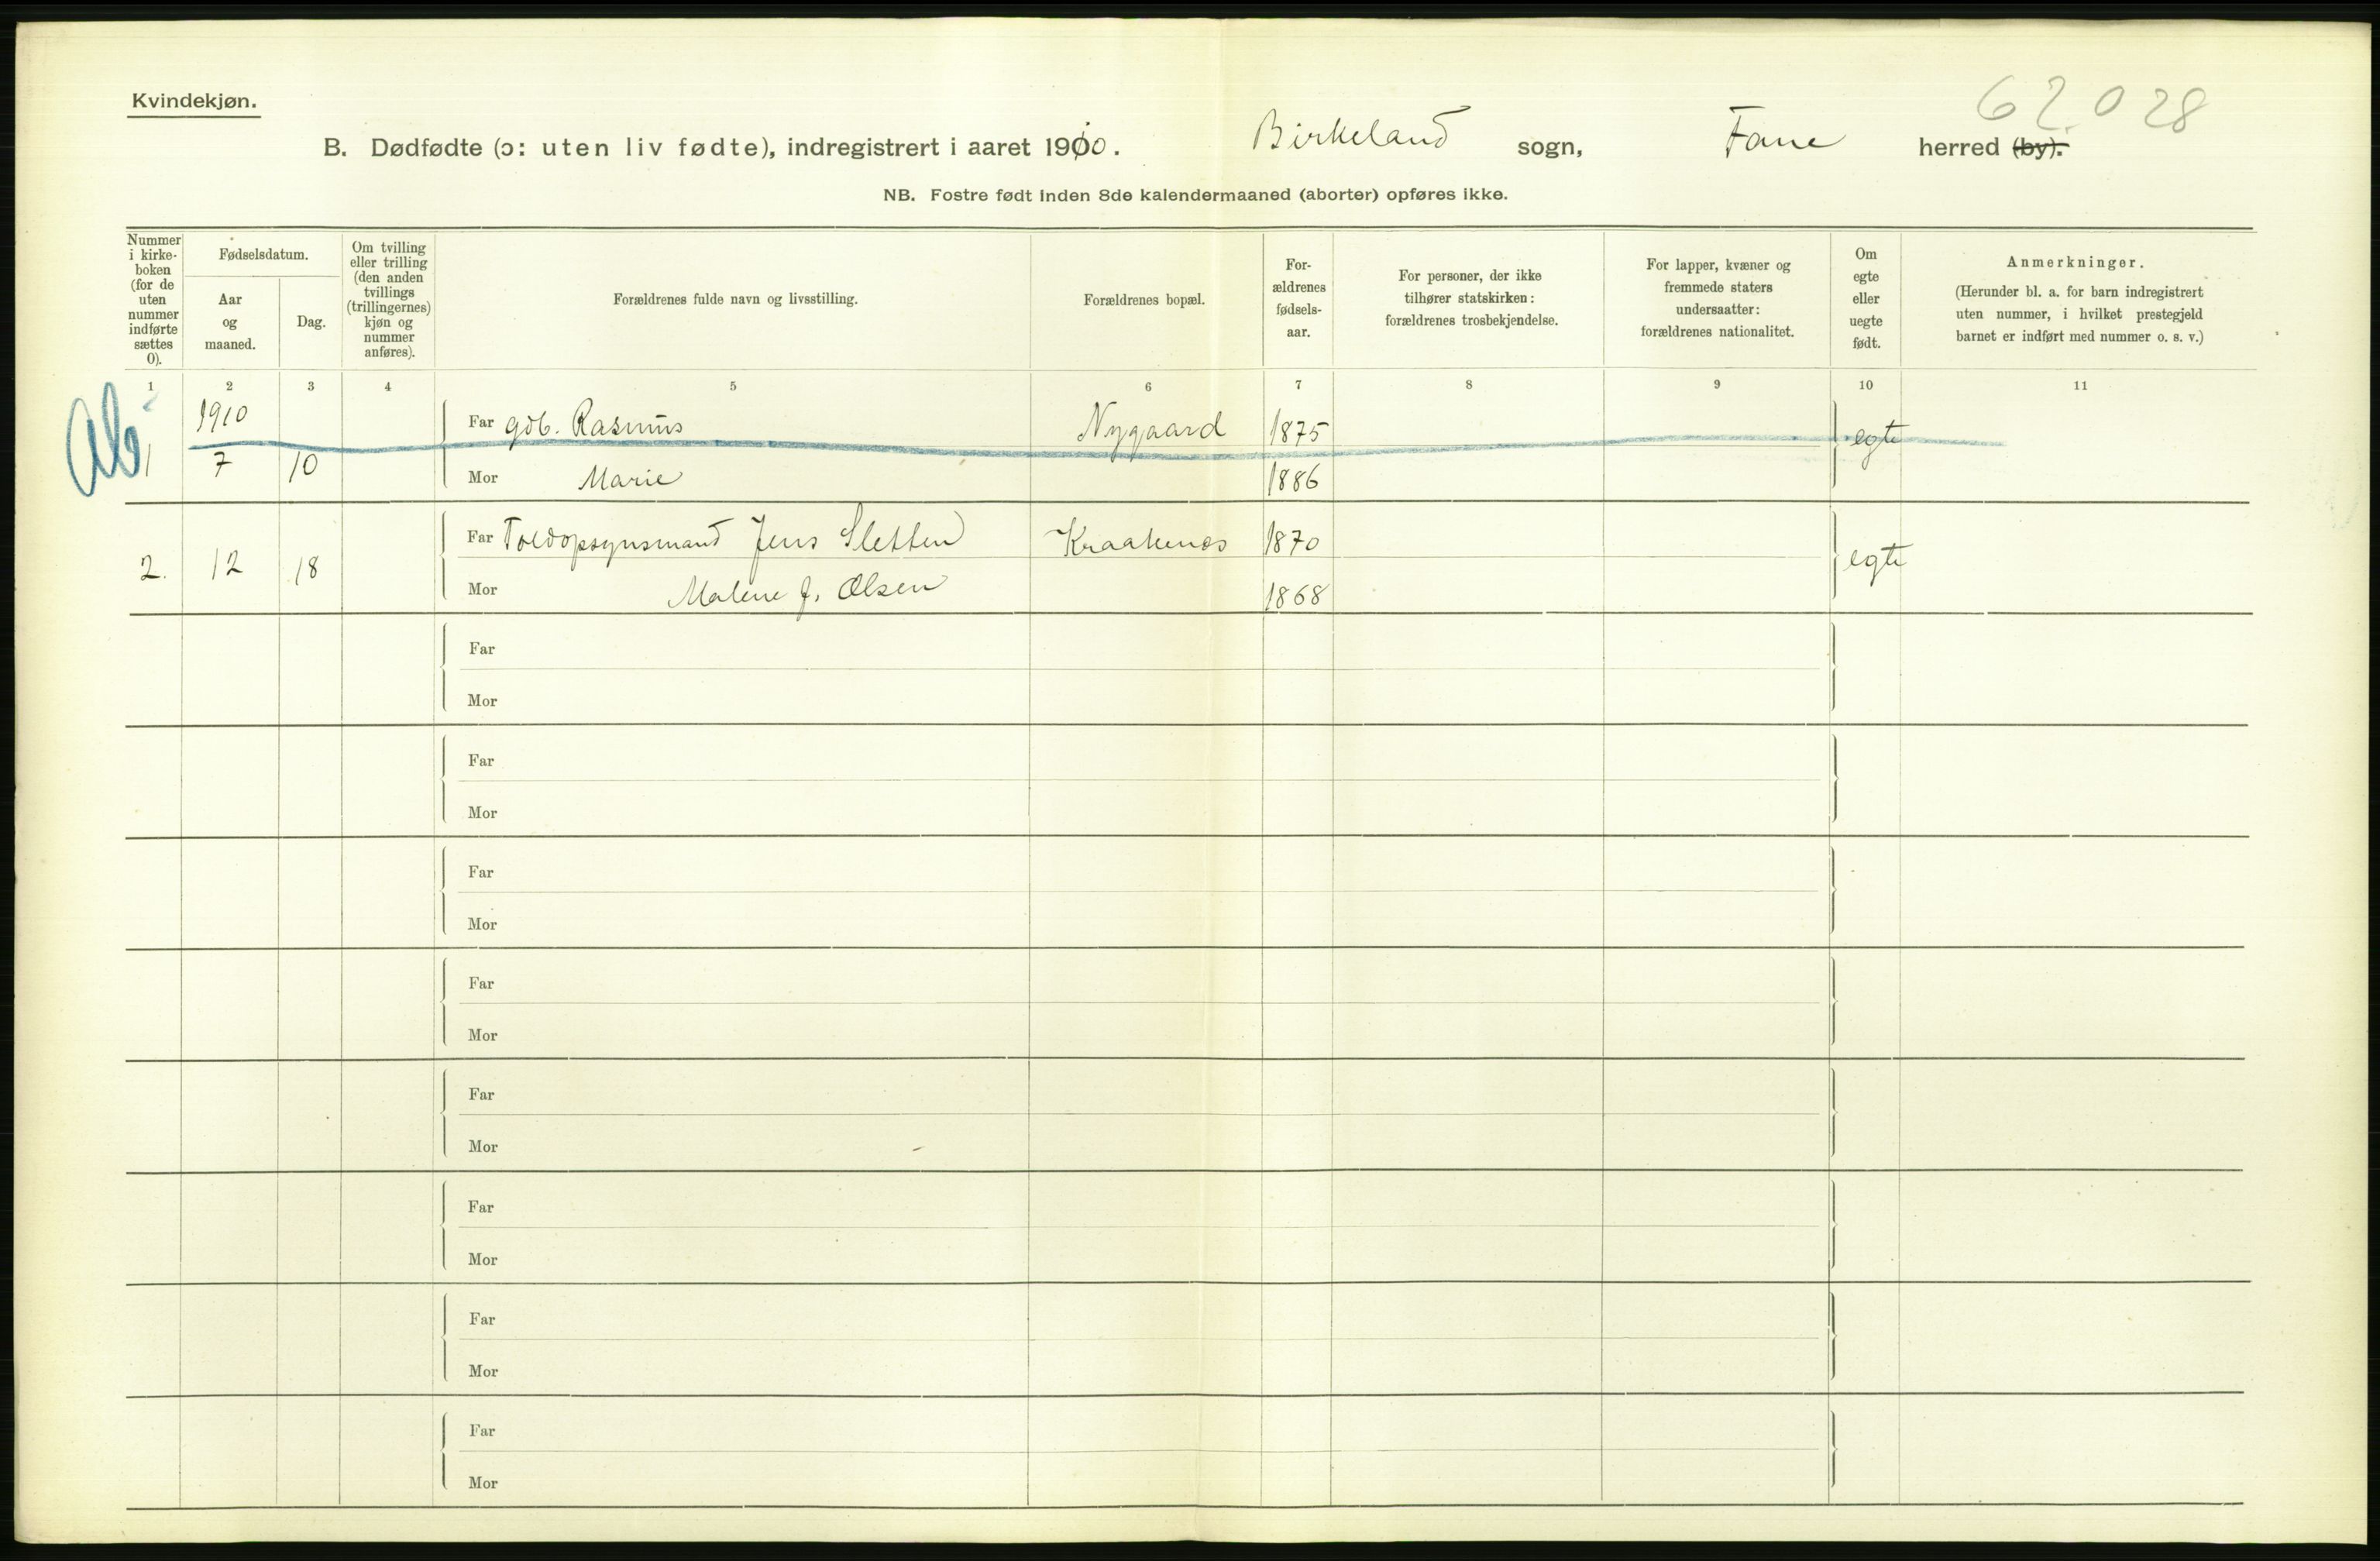 Kvindekjøn.
62.028
B. Dødfødte (ɔ: uten liv fødte), indregistrert i aaret 1910. Birkeland sogn, Fane herred (by).
NB. Fostre født inden 8de kalendermaaned (aborter) opføres ikke.
Nummer i kirke-boken (for de uten nummer indførte sættes 0).
Fødselsdatum.
Aar og maaned.
Dag.
Om tvilling eller trilling (den anden tvillings (trillingernes) kjøn og nummer anføres).
Forældrenes fulde navn og livsstilling.
Forældrenes bopæl.
For-ældrenes fødsels-aar.
For personer, der ikke tilhører statskirken: forældrenes trosbekjendelse.
For lapper, kvæner og fremmede staters undersaatter: forældrenes nationalitet.
Om egte eller uegte født.
Anmerkninger.
(Herunder bl. a. for barn indregistrert uten nummer, i hvilket prestegjeld barnet er indført med nummer o. s. v.)
1 2 3 4 5 6 7 8 9 10 11
1910
Far gdb. Rasmus Nygaard 1875 egte
Ab. 1 7 10
Mor Marie 1886
Far Toldopsynsmand Jens Sletten Kraakenes 1870
2. 12 18 egte
Mor Malene J. Olsen 1868
Far
Mor
Far
Mor
Far
Mor
Far
Mor
Far
Mor
Far
Mor
Far
Mor
Far
Mor